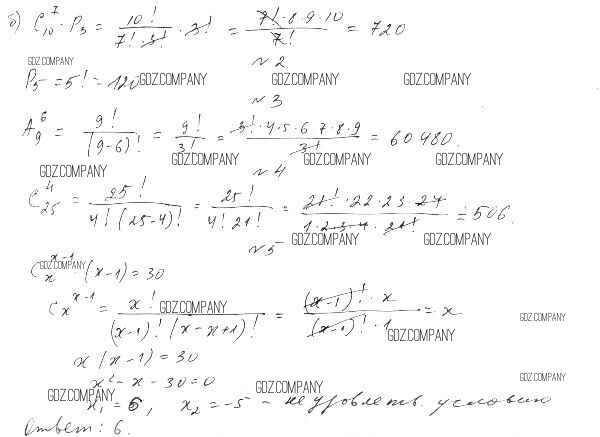 б) C₁₀⁷ · P₃ = 10! / (7! · 3!) · 3! = (7! · 8 · 9 · 10) / 7! = 720
GDZ.COMPANY
№ 2
P₅ = 5! = 120 GDZ.COMPANY GDZ.COMPANY GDZ.COMPANY
№ 3
A₉⁶ = 9! / (9-6)! = 9! / 3! = (3! · 4 · 5 · 6 · 7 · 8 · 9) / 3! = 60480.
GDZ.COMPANY GDZ.COMPANY GDZ.COMPANY GDZ.COMPANY
№ 4
C₂₅⁴ = 25! / (4! (25-4)!) = 25! / (4! 21!) = (21! · 22 · 23 · 24) / (1 · 2 · 3 · 4 · 21!) = 506.
№ 5 GDZ.COMPANY GDZ.COMPANY
Cₓˣ⁻¹ · (x-1) = 30
GDZ.COMPANY
Cₓˣ⁻¹ = x! / ((x-1)! (x-x+1)!) = ((x-1)! · x) / ((x-1)! · 1) = x
GDZ.COMPANY GDZ.COMPANY GDZ.COMPANY
x (x-1) = 30
x² - x - 30 = 0
GDZ.COMPANY GDZ.COMPANY GDZ.COMPANY
x₁ = 6, x₂ = -5 - не удовлетв. условию
Ответ: 6.